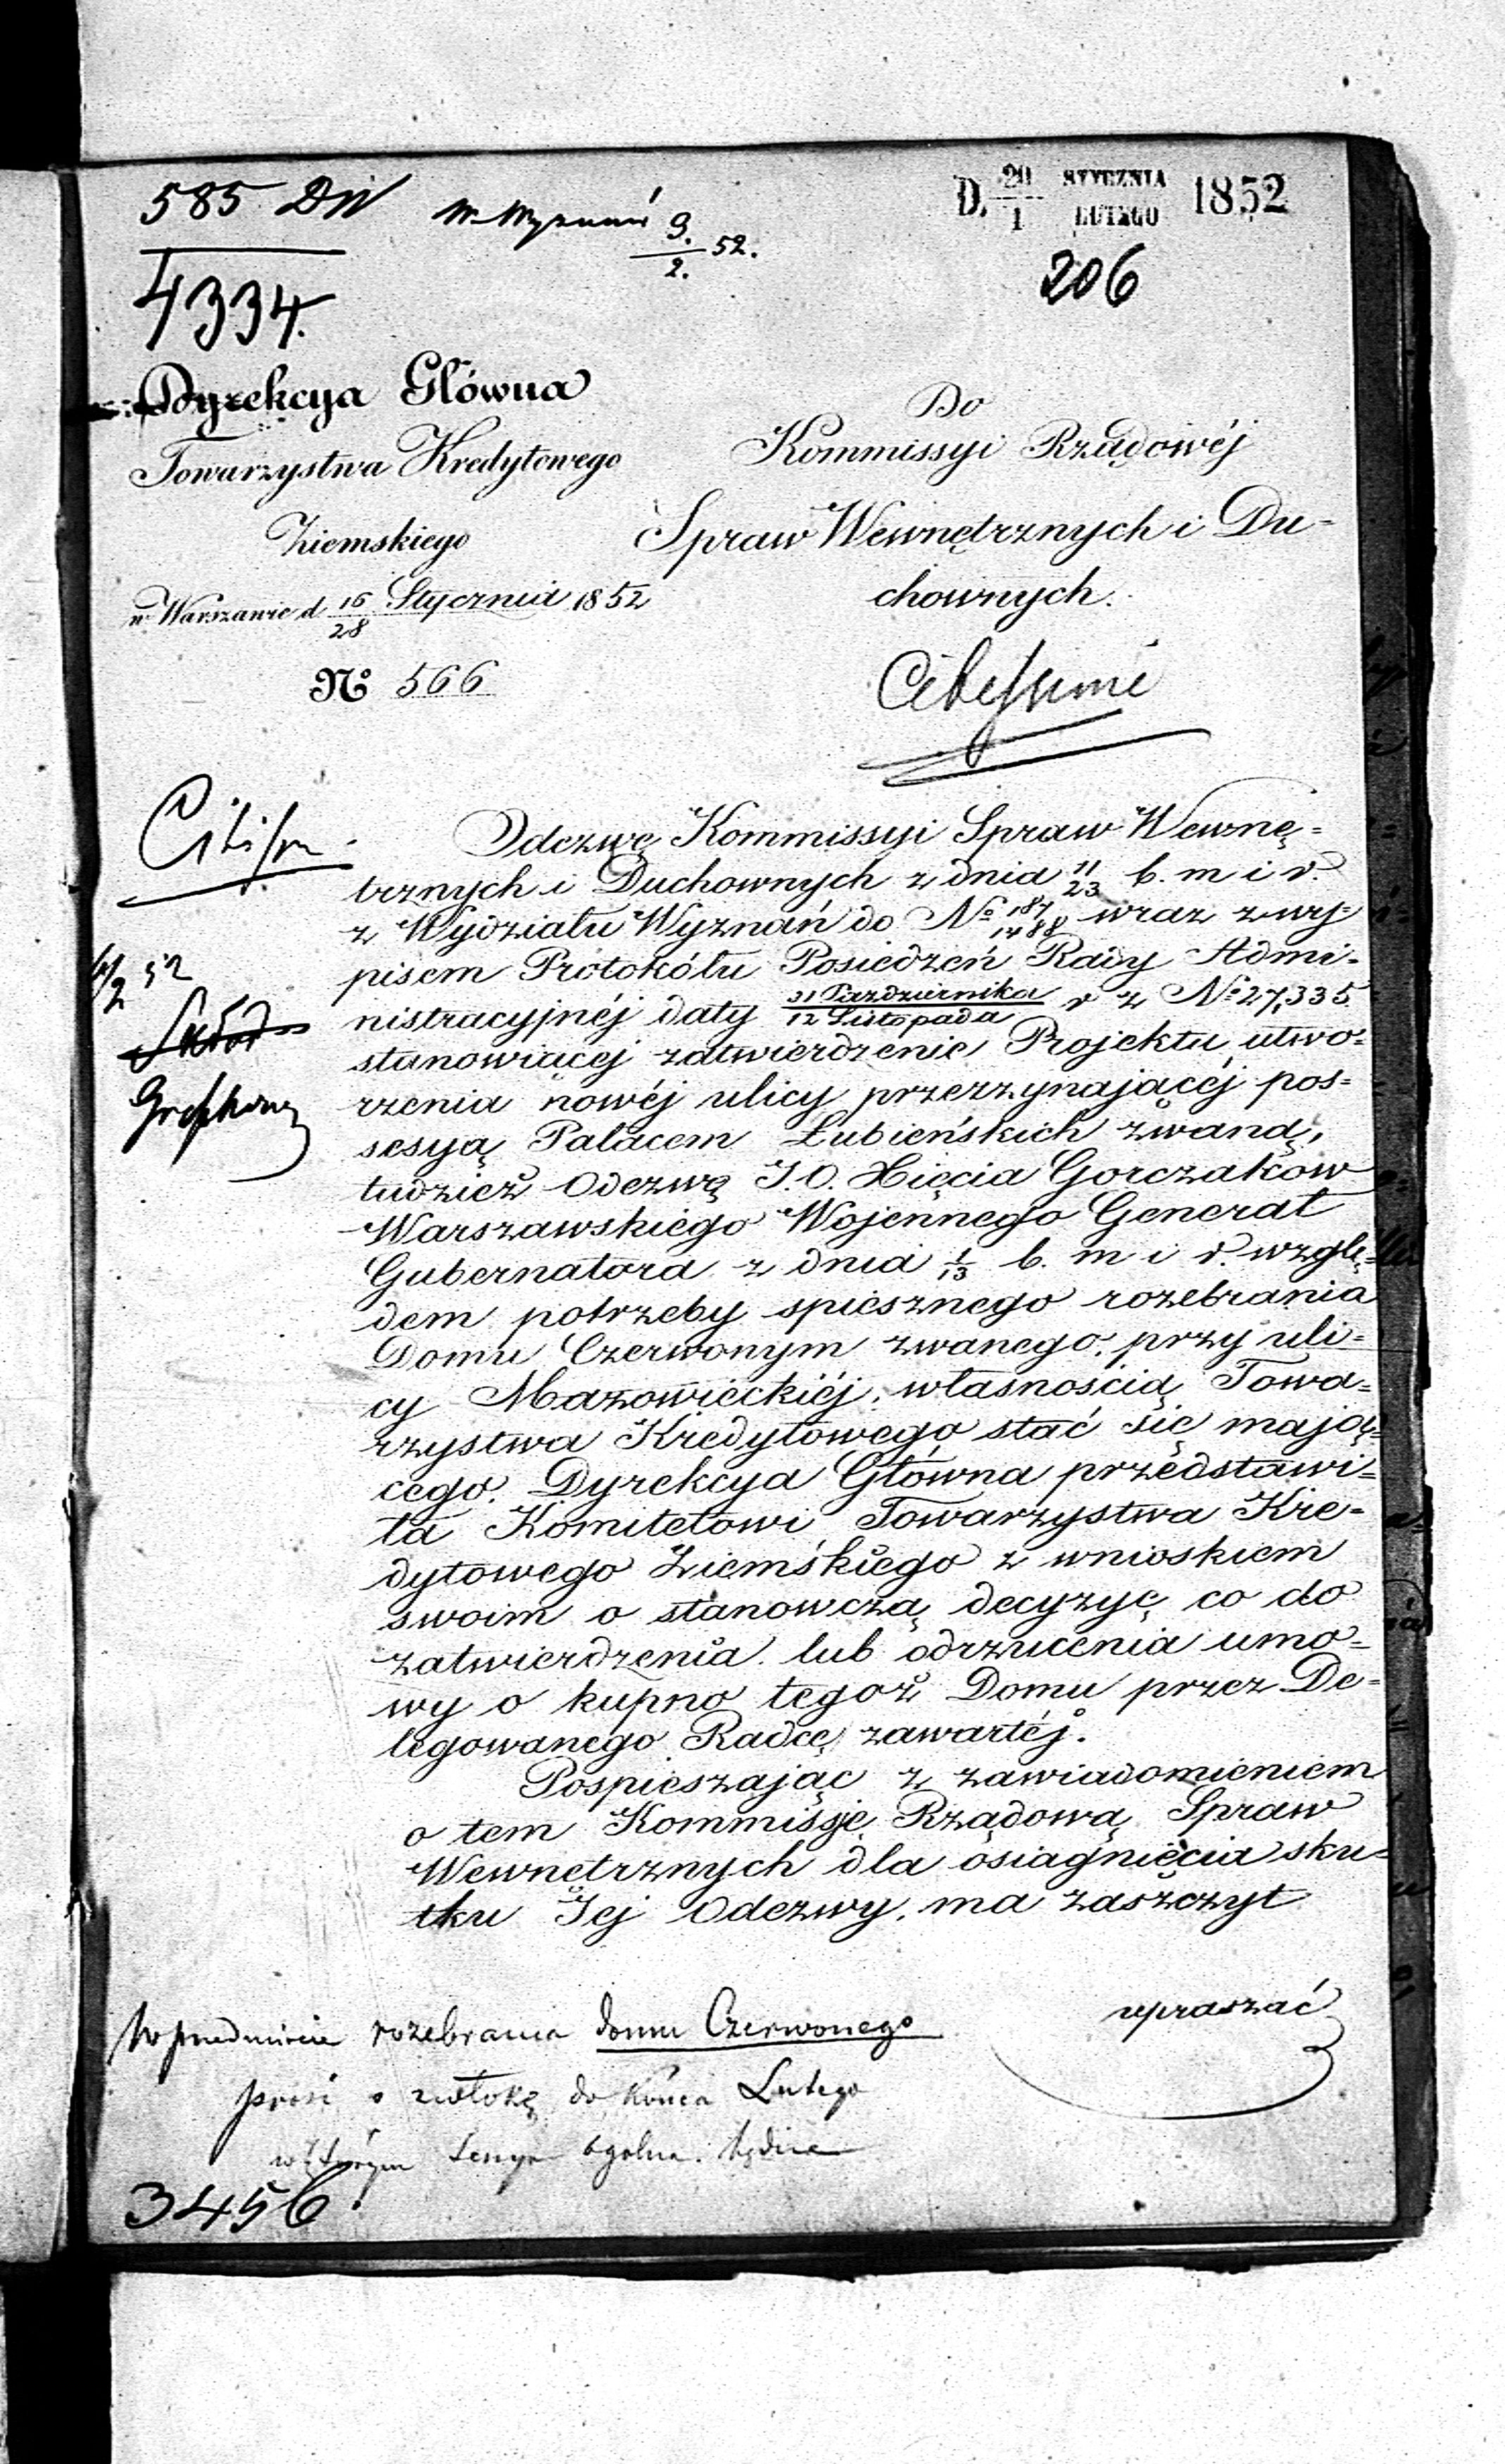 585 DW
W. Wyznań 9/2. 52.
D. 20/1 STYCZNIA/LUTEGO 1852
206
4334.
Dyrekcya Główna
Towarzystwa Kredytowego
Ziemskiego
w Warszawie d 16/28 Stycznia 1852
№ 566
Do
Kommissyi Rządowéj
Spraw Wewnętrznych i Du-
chownych.
Citissime
Citissi
Odezwę Kommissyi Spraw Wewnę-
trznych i Duchownych z dnia 11/23 b. m i r.
z Wydziału Wyznań do № 187/1488 wraz z wy-
pisem Protokółu Posiedzeń Rady Admi-
nistracyjnéj daty 31 Października/12 Listopada r z № 27,335
stanowiącej zatwierdzenie Projektu utwo-
rzenia nowéj ulicy przerzynającéj pos-
sesyą Pałacem Łubieńskich zwaną,
tudzież Odezwę J.O. Xięcia Gorczakow
Warszawskiego Wojennego Generał
Gubernatora z dnia 1/13 b. m i r. wzglę-
dem potrzeby spiesznego rozebrania
Domu Czerwonym zwanego, przy uli-
cy Mazowieckiéj, własnością Towa-
rzystwa Kredytowego stać się mają-
cego. Dyrekcya Główna przedstawi-
ła Komitetowi Towarzystwa Kre-
dytowego Ziemskiego z wnioskiem
swoim o stanowczą decyzyę co do
zatwierdzenia lub odrzucenia umo-
wy o kupno tegoż Domu przez De-
legowanego Radcę zawartéj.
Pospieszając z zawiadomieniem
o tem Kommissję Rządową Spraw
Wewnętrznych dla osiągnięcia sku-
tku Jej Odezwy, ma zaszczyt
upraszać
W przedmiocie rozebrania domu Czerwonego
prosi o zwłokę do końca Lutego
w którym Sesya ogólna będzie
3456